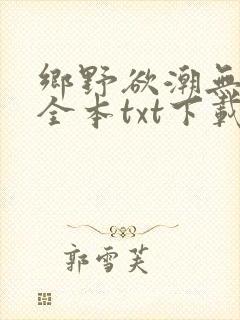 鄉野欲潮無
全本txt下載
郭雪芙